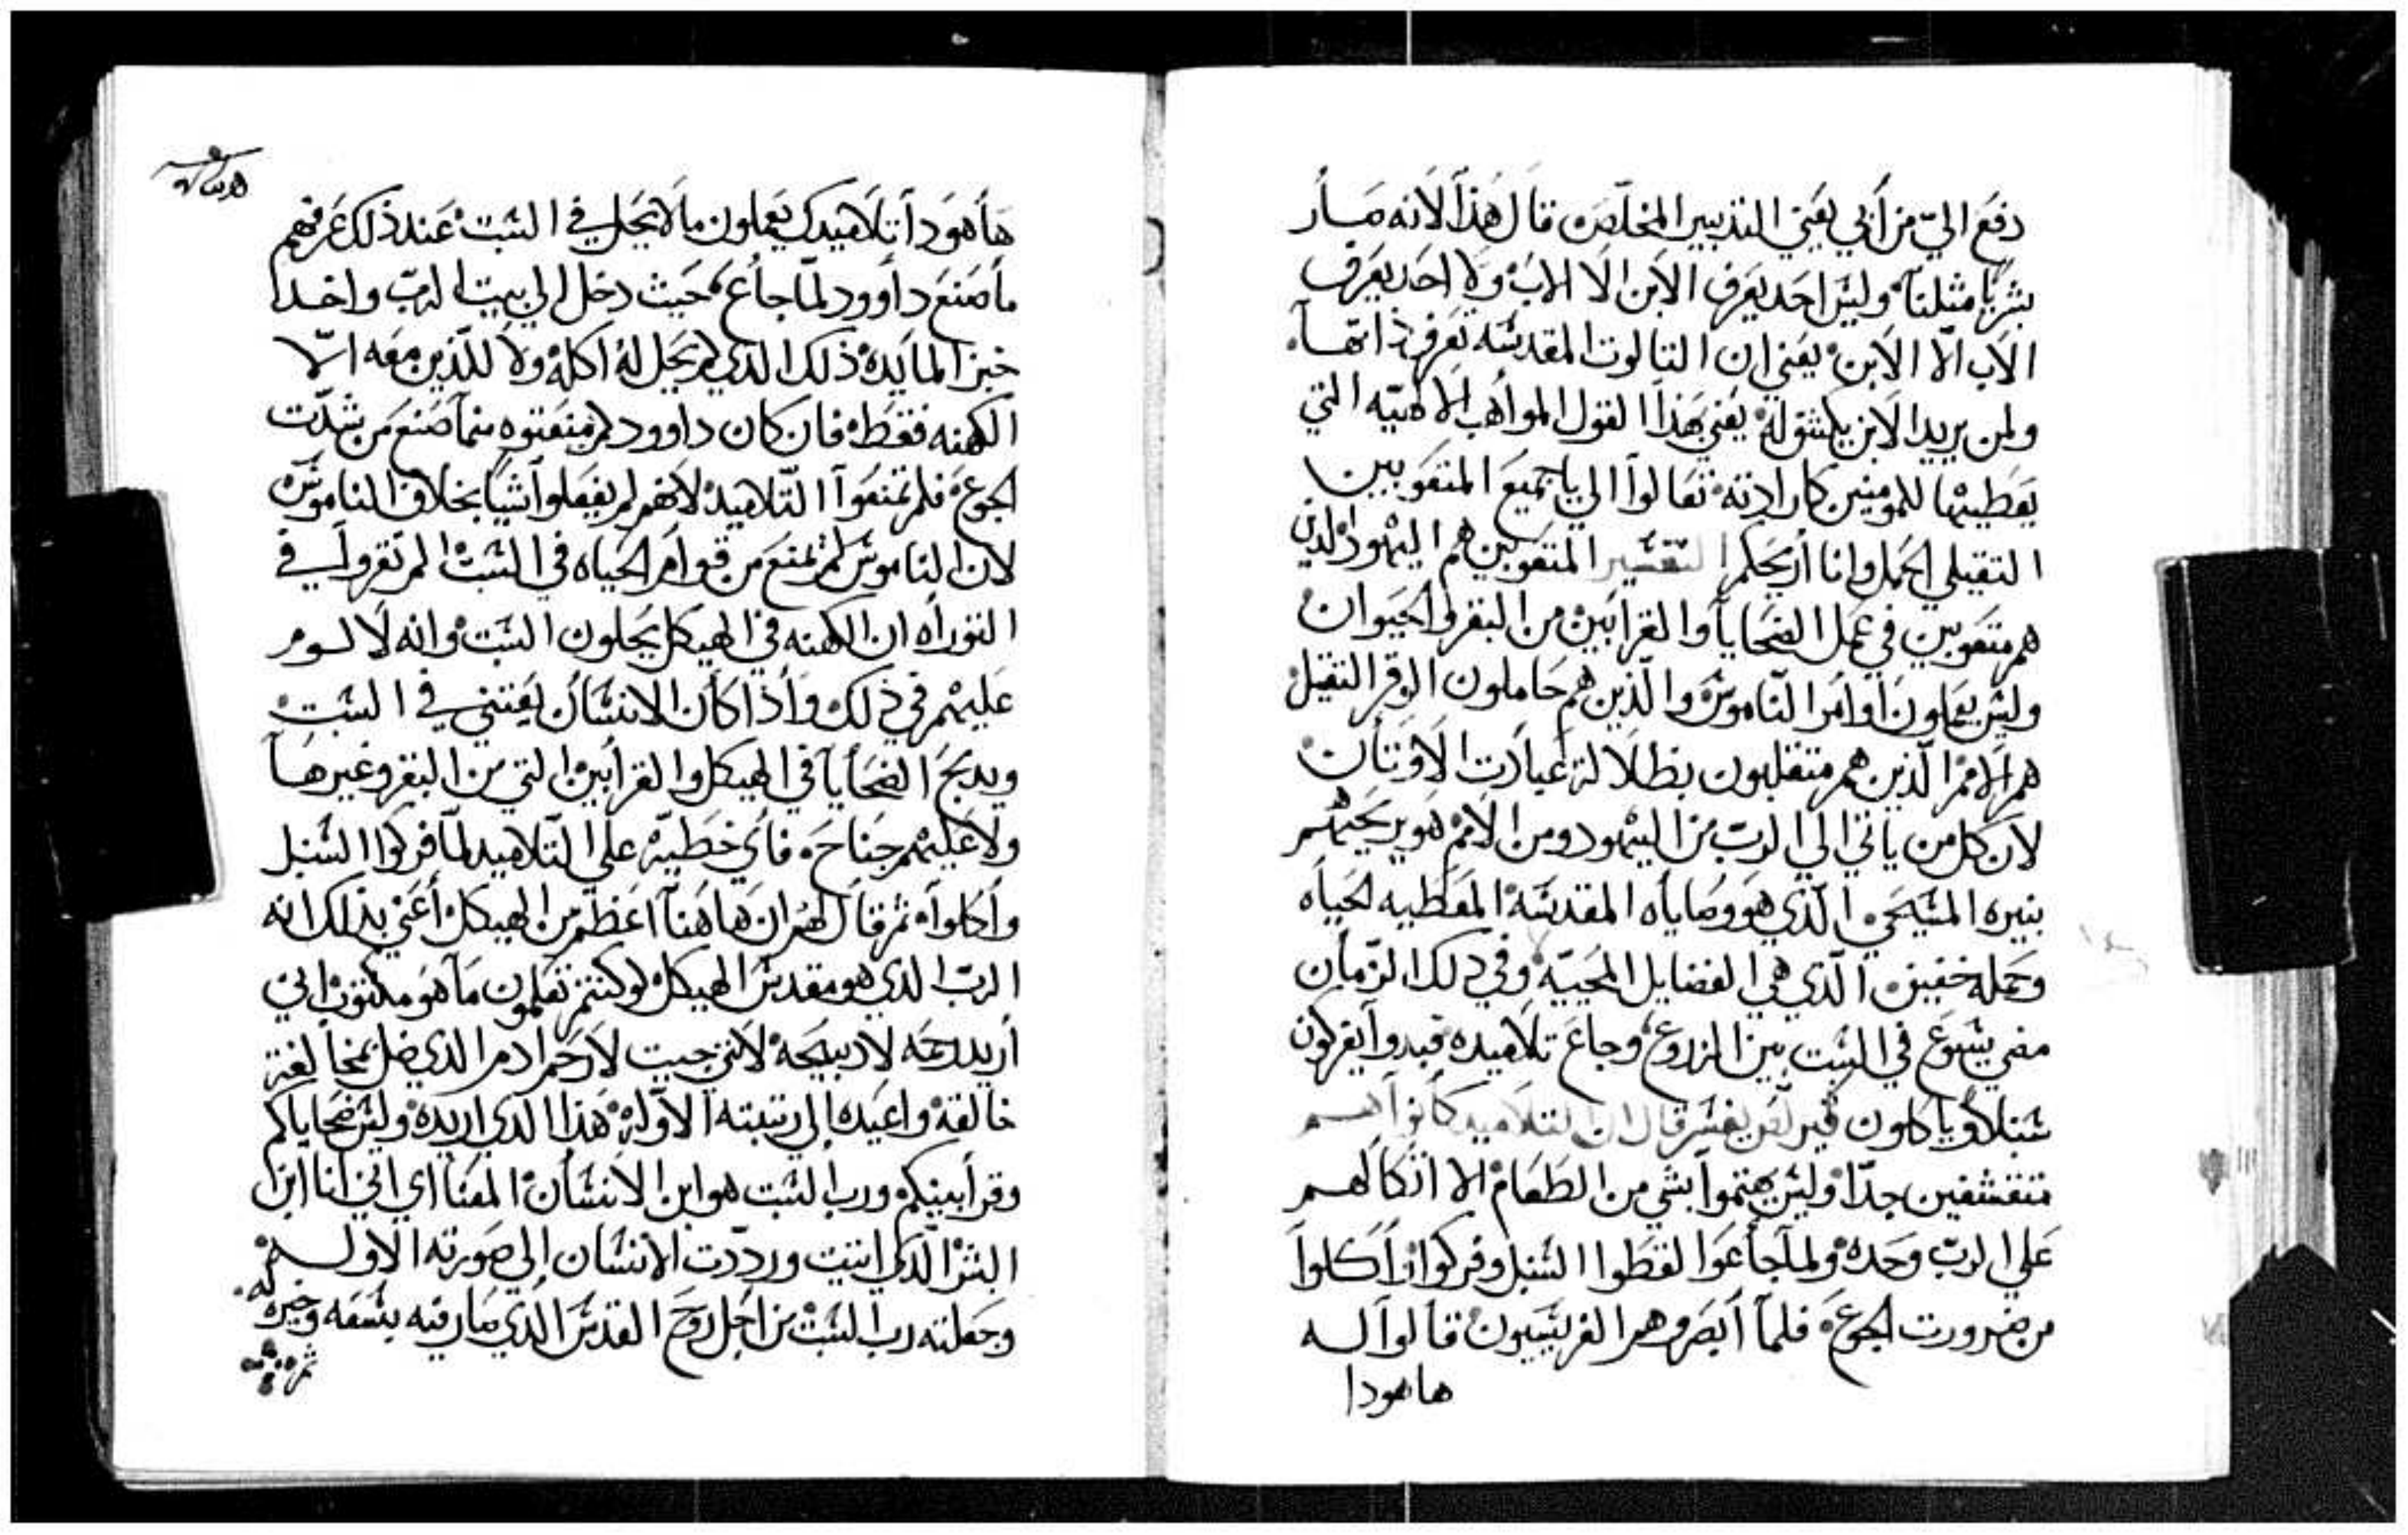 دفع الىّ من أبي يعني التدبير المخلّص قال هذا لانه صار
بشريًا مثلنا وليس احد يعرف الابن الا الاب ولا احد يعرف
الاب الّا الابن يعني ان التالوت المقدسه تعرف ذاتها
ولمن يريد الابن يكشف له يعني بهذا القول المواهب الالاهيّه التي
يعطيها للمومنين كارادته تعالوا الي يا جميع المتعوبين
التقيلي الحمل وانا أريحكم التفسير المتعوبين هم اليهود الذين
هم متعوبين في عمل الضحايا والقرابين من البقر والحيوان
وليس يعملون اوامر النّاموس والّذين هم حاملون الوقر التقيل
هم الامم الّذين هم متقلبون بظلالة عبادت الاوتان
لان كل من ياتي الي الربّ من اليهود ومن الامم هو يريحهم
بنيره المسيحي الّذي هو وصاياه المقدسة المعطيه الحياه
وحمله خفيف الّذي هي الفضايل المحييّة وفي دلك الزمان
مضي يسوع في السبت بين الزروع وجاع تلاميده فبدوا يفركون
سنبلا وياكلون فيرلّص يفسر قال ان التلاميد كانوا
متقشفين جدّا وليس يهتموا بشي من الطعام الا اتكالهم
علي الربّ وحده ولما جاعوا لقطوا السنبل وفركوا واكلوا
من ضرورت الجوع فلما أبصروهم الفريسيون قالوا له
هاهودا
هاهودا تلاميدك يعملون ما لا يحل في السبت عند ذلك عرفهم
ما صنع داوود لمّا جاع حيث دخل الي بيت الربّ واخد
خبز المايده ذلك الدي لم يحل له اكله ولا للّذين معه الّا
الكهنه فقط فان كان داوود لم منعتوه مما صنع من شدّت
الجوع فلم تمنعوا التّلاميد لانهم لم يفعلوا شيًا بخلاف الناموس
لان الناموس لم يمنع من قوام الحياه في السبت لم تقروا في
التوراه ان الكهنه في الهيكل يحلون السبت وانه لا لوم
عليهم في ذلك واذا كان الانسان يعتني في السبت
ويدبح الضحايا في الهيكل والقرابين التي من البقر وغيرها
ولا عليهم جناح فاي خطيّه علي التّلاميد لمّا فركوا السنبل
واكلوا ثم قال لهم ان هاهنا اعظم من الهيكل أعني بدلك انه
الربّ الدي هو مقدس الهيكل لو كنتم تعلمون ما هو مكتوب اني
أريد رحمه لا دبيحة لانني جيت لارحم ادم الدي ضل بمخالفة
خالقه واعيده الي رتبته الاوّله هذا الدي اريده وليس ضحاياكم
وقرابينكم ورب السبت هو ابن الانسان المعنا اي اني انا ابن
البشر الّدي اتيت وردّدت الانسان الي صورته الاوله
وجعلته رب السبت من اجل روح القدس الّدي صار فيه بنسمه وخيره
ثم